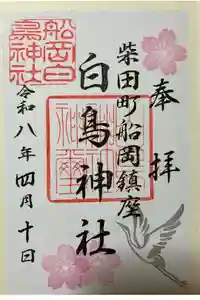 奉拝
柴田町船岡鎮座
白鳥神社
令和八年四月十日
船岡白鳥神社